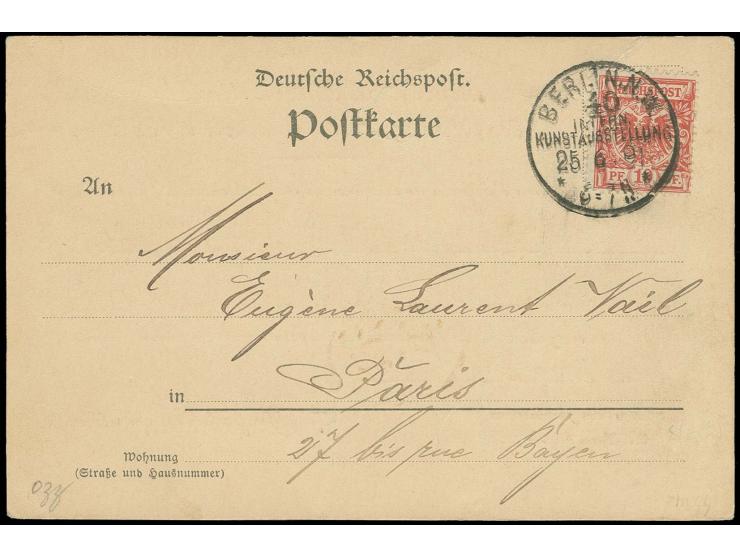 Deutsche Reichspost.
Postkarte
BERLIN.N.W.
40
INTERN
KUNSTAUSSTELLUNG
25 6 91
* 6-7N *
REICHSPOST
PF. 10 PF.
An
Monsieur
Eugène Laurent Vail
in Paris
Wohnung
(Straße und Hausnummer)
27 bis rue Bayen